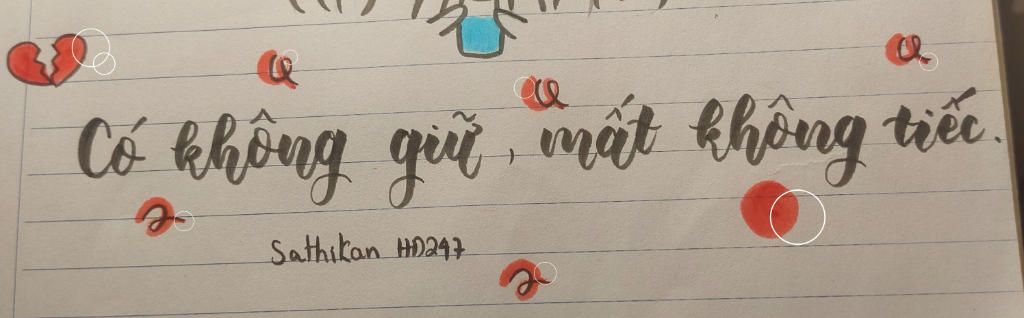 Có không giữ, mất không tiếc.
Sathikan HD247